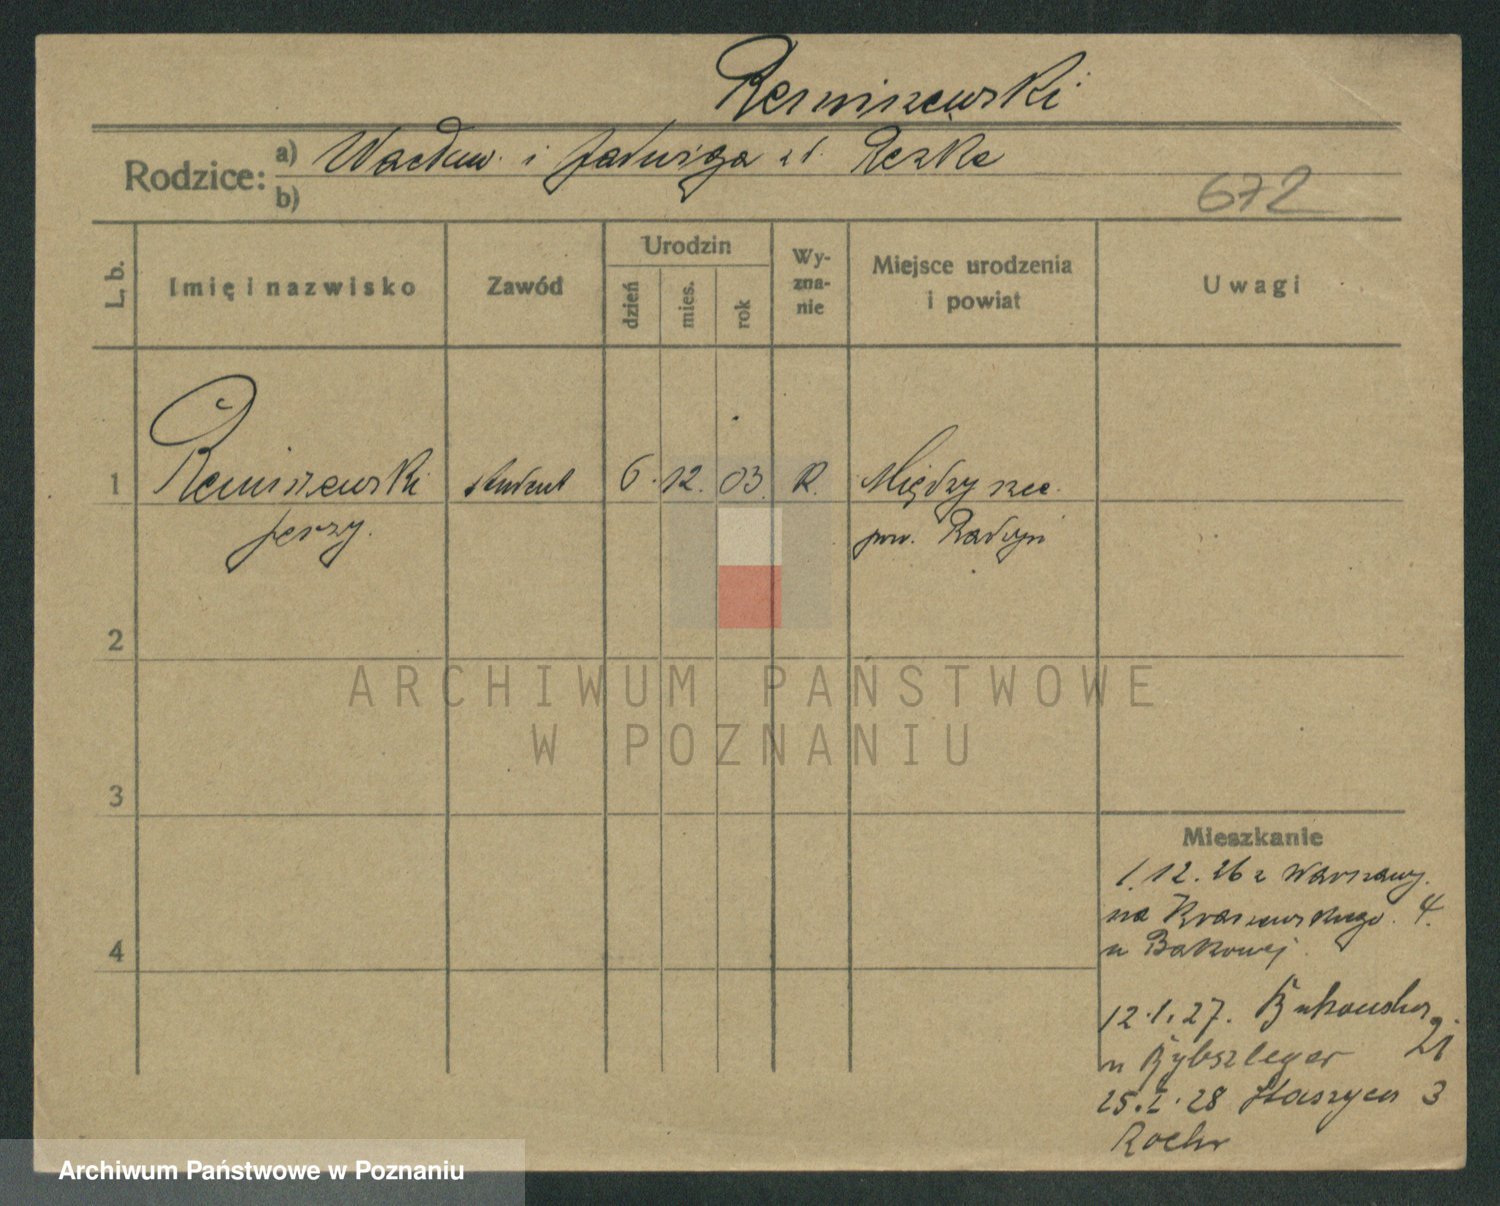 Remiszewski
Rodzice: a) Wacław i Jadwiga z d. Reszke
b)
672
L. b.
Imię i nazwisko
Zawód
Urodzin
dzień
mies.
rok
Wy-
zna-
nie
Miejsce urodzenia
i powiat
Uwagi
1 Remiszewski student 6. 12. 03. R. Międzyrzec
Jerzy. pow. Radzyń
2
3
4
Mieszkanie
1.12.26 z Warszawy.
na Kraszewskiego 4.
u Bakowej
12.1.27. Bukowska
21
u Rybszleger
25.I.28 Staszyca 3
Roehr
ARCHIWUM PAŃSTWOWE
W POZNANIU
Archiwum Państwowe w Poznaniu